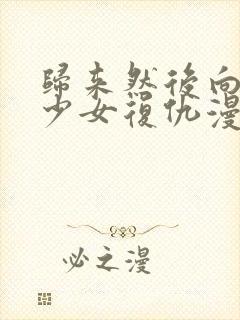 歸来然後向
少女復仇漫
必之漫